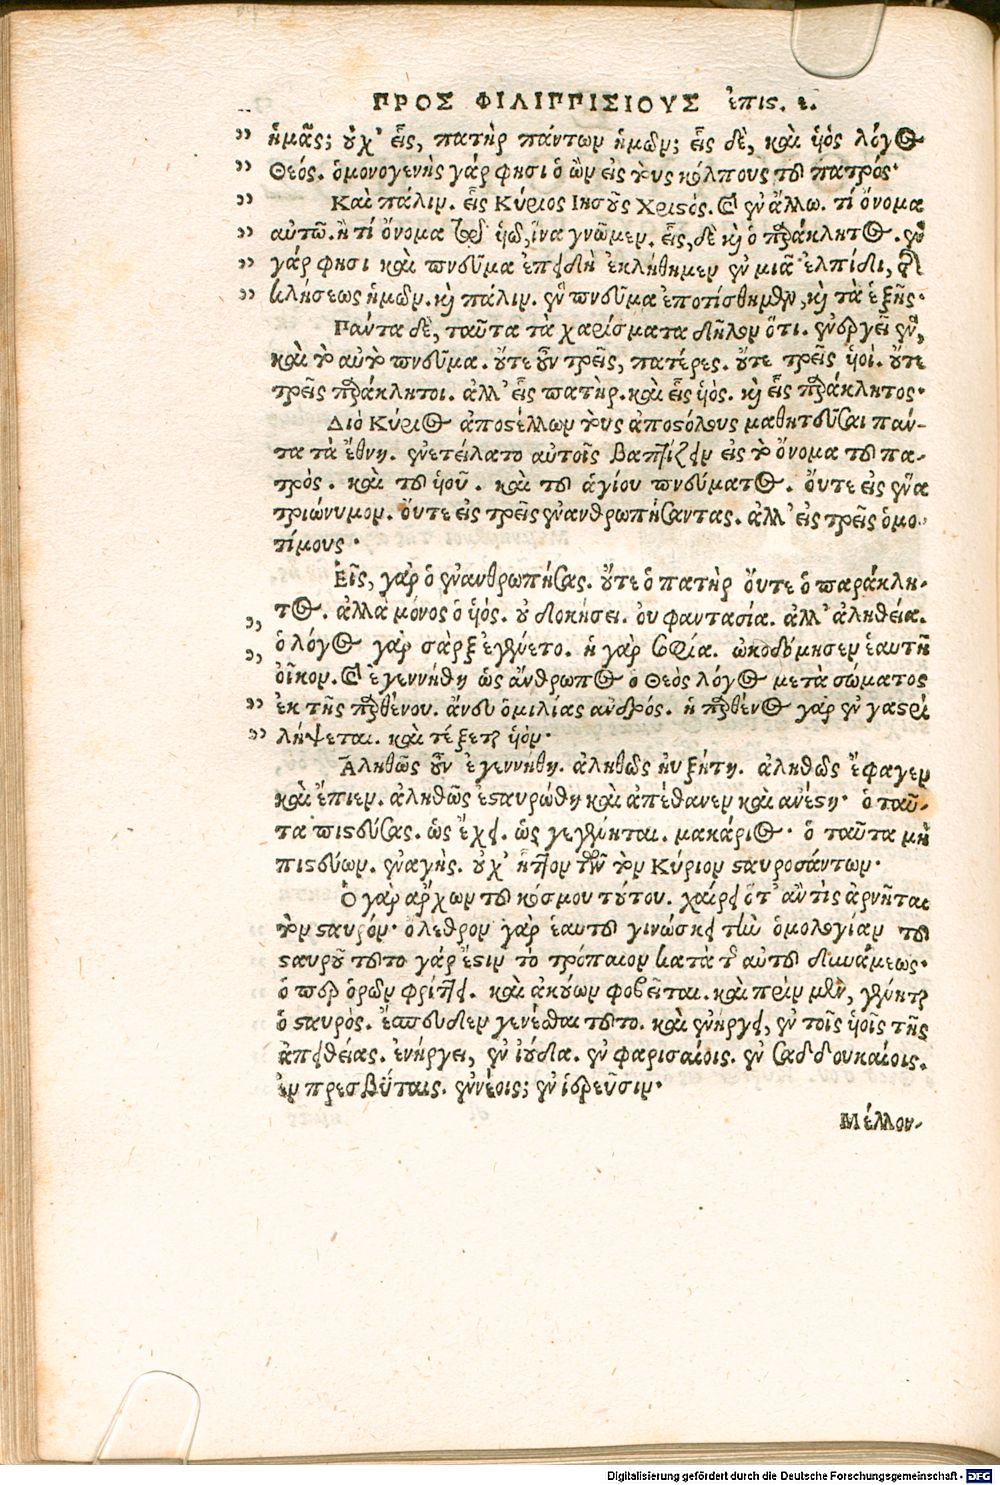 ΠΡΟΣ ΦΙΛΙΠΠΙΣΙΟΥΣ ἐπις. ε.
ἡμᾶς; οὐχ' εἷς, πατὴρ πάντων ἡμῶν; εἷς δὲ, καὶ υἱὸς λόγος
Θεός. ὁμονογενὴς γάρ φησι ὁ ὢν εἰς τοὺς κόλπους τοῦ πατρός·
Καὶ πάλιν. εἷς Κύριος Ιησοῦς Χριστός. καὶ ἐν ἄλλω. τί ὄνομα
αὐτῶ. ἢ τί ὄνομα τῶ υἱῶ, ἵνα γνῶμεν. εἷς, δὲ καὶ ὁ παράκλητος. ἓν
γάρ φησι καὶ πνεῦμα ἐπειδὴ ἐκλήθημεν ἐν μιᾶ ἐλπίδι, τῆς
κλήσεως ἡμῶν. καὶ πάλιν. ἓν πνεῦμα ἐποτίσθημεν, καὶ τὰ ἑξῆς·
Πάντα δὲ, ταῦτα τὰ χαρίσματα δῆλον ὅτι. ἐνεργεῖ ἓν,
καὶ τὸ αὐτὸ πνεῦμα. οὔτε οὖν τρεῖς, πατέρες. οὔτε τρεῖς υἱοί. οὔτε
τρεῖς παράκλητοι. ἀλλ' εἷς πατὴρ. καὶ εἷς υἱός. καὶ εἷς παράκλητος·
Διὸ Κύριος ἀποστέλλων τοὺς ἀποστόλους μαθητεῦσαι πάν-
τα τὰ ἔθνη. ἐνετείλατο αὐτοῖς βαπτίζειν εἰς τὸ ὄνομα τοῦ πα-
τρὸς. καὶ τοῦ υἱοῦ. καὶ τοῦ ἁγίου πνεύματος. οὔτε εἰς ἕνα
τριώνυμον. οὔτε εἰς τρεῖς ἐνανθρωπήσαντας. ἀλλ' εἰς τρεῖς ὁμο-
τίμους·
Εἷς, γὰρ ὁ ἐνανθρωπήσας. οὔτε ὁ πατὴρ οὔτε ὁ παράκλη-
τος. ἀλλὰ μόνος ὁ υἱός. οὐ δοκήσει. οὐ φαντασία. ἀλλ' ἀληθεία.
ὁ λόγος γὰρ σὰρξ ἐγένετο. ἡ γὰρ σοφία. ὠκοδόμησεν ἑαυτῆ
οἶκον. καὶ ἐγεννήθη ὡς ἄνθρωπος ὁ Θεὸς λόγος μετὰ σώματος
ἐκ τῆς παρθένου. ἄνευ ὁμιλίας ἀνδρός. ἡ παρθένος γὰρ ἐν γαστρὶ
λήψεται. καὶ τέξεται υἱόν·
Ἀληθῶς οὖν ἐγεννήθη. ἀληθῶς ηὐξήτη. ἀληθῶς ἔφαγεν
καὶ ἔπιεν. ἀληθῶς ἐσταυρώθη καὶ ἀπέθανεν καὶ ἀνέστη· ὁ ταῦ-
τα πιστεύσας. ὡς ἔχει. ὡς γεγένηται. μακάριος· ὁ ταῦτα μὴ
πιστεύων. ἐναγὴς. οὐχ' ἧττον τῶν τὸν Κύριον σταυροσάντων·
Ὁ γὰρ ἄρχων τοῦ κόσμου τούτου. χαίρει ὅτ' ἄν τὶς ἀρνῆται
τὸν σταυρόν· ὄλεθρον γὰρ ἑαυτοῦ γινώσκει τὴν ὁμολογίαν τοῦ
σταυροῦ τοῦτο γάρ ἔστιν τὸ τρόπαιον κατὰ τῆς αὐτοῦ δυνάμεως·
ὅ περ ὁρῶν φρίττει. καὶ ἀκούων φοβεῖται. καὶ πρὶν μὲν, γένηται
ὁ σταυρὸς. ἔσπευδεν γενέσθαι τοῦτο. καὶ ἐνήργει, ἐν τοῖς υἱοῖς τῆς
ἀπειθείας. ἐνήργει, ἐν ἰούδα. ἐν φαρισαίοις. ἐν σαδδουκαίοις.
ἐν πρεσβύταις. ἐν νέοις; ἐν ἱερεῦσιν·
Μέλλον-
Digitalisierung gefördert durch die Deutsche Forschungsgemeinschaft - DFG